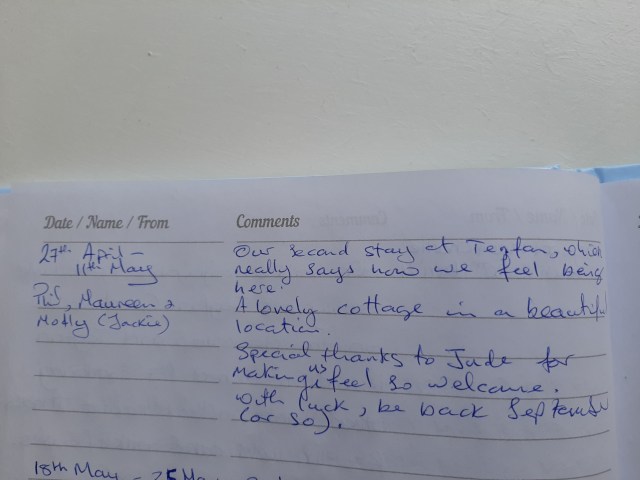 Date / Name / From
Comments
27th April –
11th May
Phil, Maureen &
Molly (Jackie)
Our second stay at Tegfan, which
really says how we feel being
here.
A lovely cottage in a beautiful
location.
Special thanks to Jude for
making us feel so welcome.
With luck, be back September
(or so).
18th May - 25 May